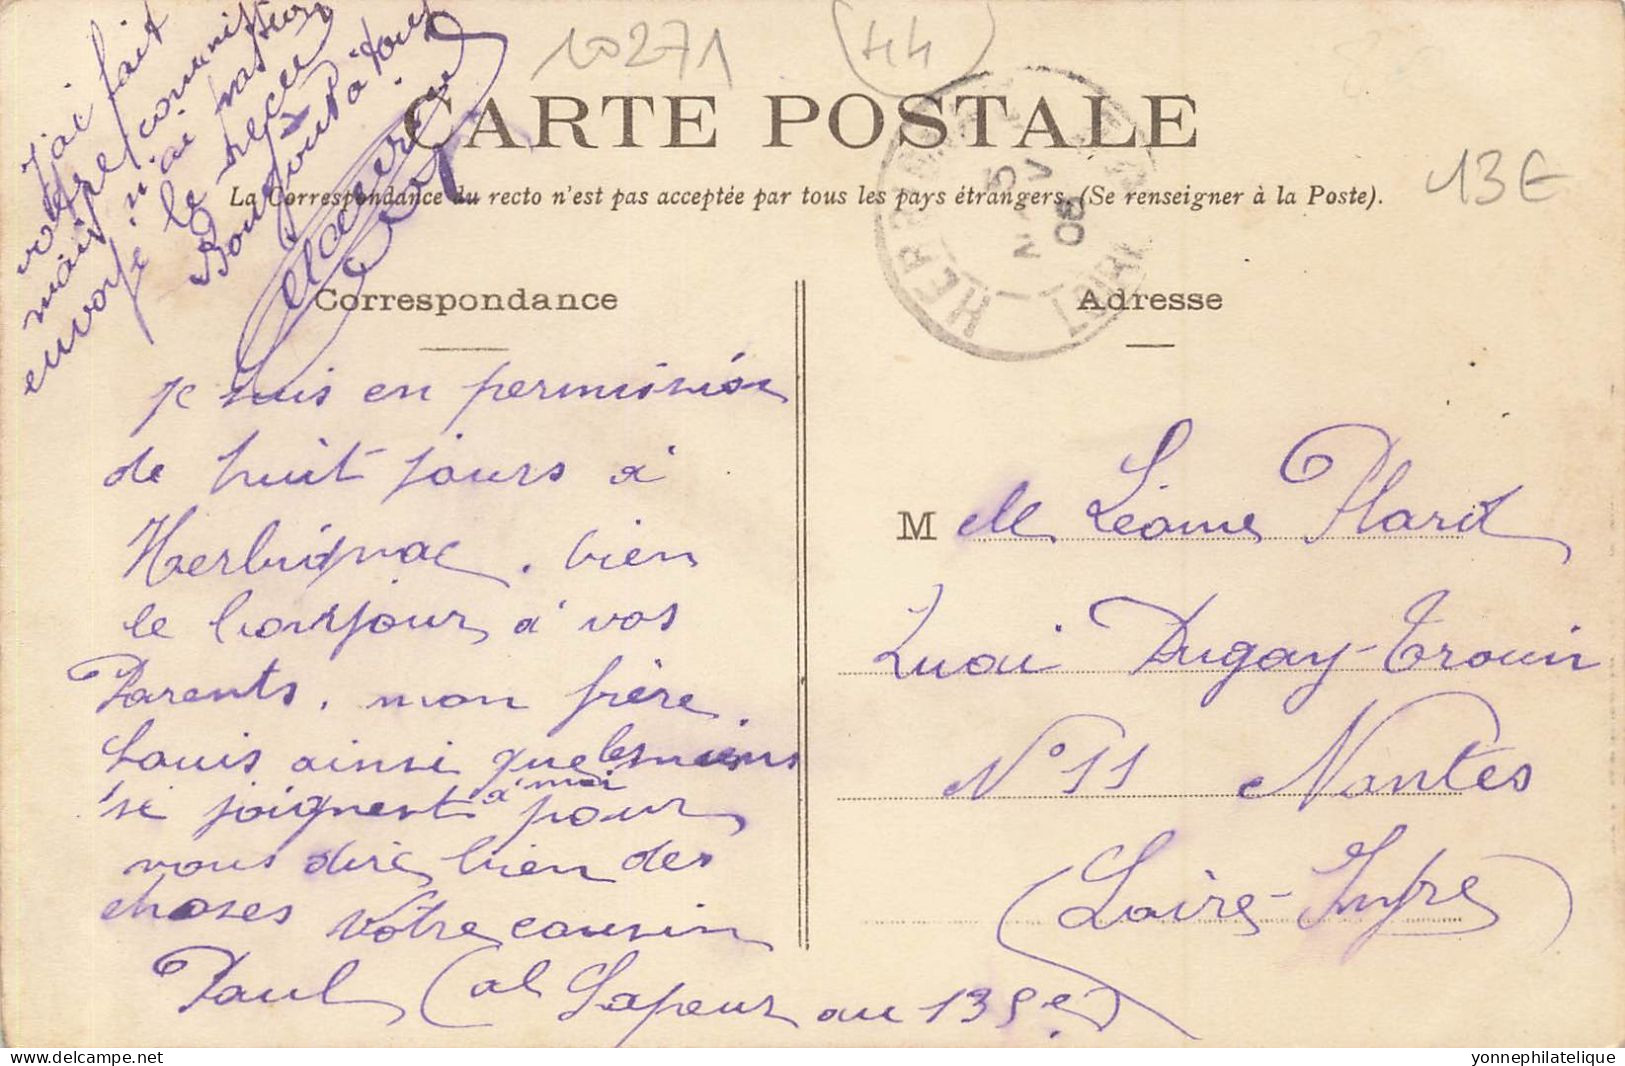 10271
(44)
13E
CARTE POSTALE
La Correspondance du recto n'est pas acceptée par tous les pays étrangers. (Se renseigner à la Poste).
HERBIGNAC
5
08
J'ai fait
votre commission
mais n'ai pas
envoyé le reçu
Bonjour à tous
Correspondance
Je suis en permission
de huit jours à
Herbignac. bien
le bonjour à vos
Parents. mon frère
Louis ainsi que les miens
se joignent à moi pour
vous dire bien des
choses Votre cousin
Paul (al Sapeur au 135e)
Adresse
M elle Léonie Plard
Quai Dugay-Trouin
N° 11 Nantes
(Loire-Infre)
yonnephilatelique